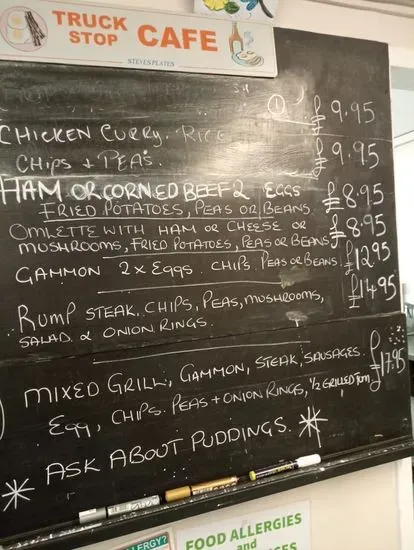 TRUCK STOP CAFE
STEVES PLATES
① £9.95
CHICKEN CURRY. RICE £9.95
CHIPS + PEAS.
HAM OR CORNED BEEF 2 EGGS £8.95
FRIED POTATOES, PEAS OR BEANS
OMLETTE WITH HAM OR CHEESE OR £8.95
MUSHROOMS, FRIED POTATOES, PEAS OR BEANS
GAMMON 2 x EGGS. CHIPS. PEAS OR BEANS £12.95
RUMP STEAK. CHIPS, PEAS, MUSHROOMS, £14.95
SALAD. & ONION RINGS.
MIXED GRILL, GAMMON, STEAK, SAUSAGES. £17.95
EGG, CHIPS. PEAS + ONION RINGS, 1/2 GRILLED TOM
* ASK ABOUT PUDDINGS. *
ALLERGY?
FOOD ALLERGIES
and